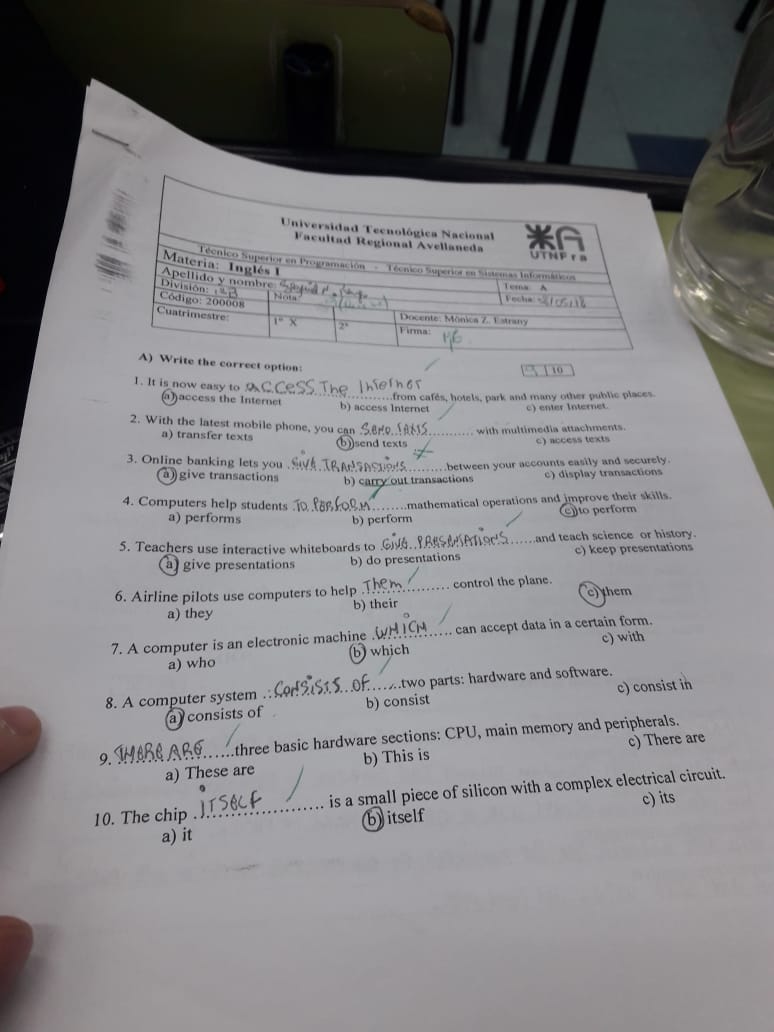 Universidad Tecnológica Nacional
Facultad Regional Avellaneda
UTNFra
Técnico Superior en Programación - Técnico Superior en Sistemas Informáticos
Materia: Inglés I
Apellido y nombre:
Tema: A
División:
Nota:
Fecha:
Código: 200008
Docente: Mónica Z. Estrany
Cuatrimestre:
1º X
2º
Firma:
A) Write the correct option:
9 10
1. It is now easy to ACCESS The InTerneT from cafés, hotels, park and many other public places.
a) access the Internet b) access Internet c) enter Internet.
2. With the latest mobile phone, you can SEND with multimedia attachments.
a) transfer texts b) send texts c) access texts
3. Online banking lets you GIVE TRANSACTIONS between your accounts easily and securely.
a) give transactions b) carry out transactions c) display transactions
4. Computers help students TO PERFORM mathematical operations and improve their skills.
a) performs b) perform c) to perform
5. Teachers use interactive whiteboards to GIVE and teach science or history.
a) give presentations b) do presentations c) keep presentations
6. Airline pilots use computers to help Them control the plane.
a) they b) their c) them
7. A computer is an electronic machine WHICH can accept data in a certain form.
a) who b) which c) with
8. A computer system CONSISTS OF two parts: hardware and software.
a) consists of b) consist c) consist in
9. THERE ARE three basic hardware sections: CPU, main memory and peripherals.
a) These are b) This is c) There are
10. The chip ITSELF is a small piece of silicon with a complex electrical circuit.
a) it b) itself c) its